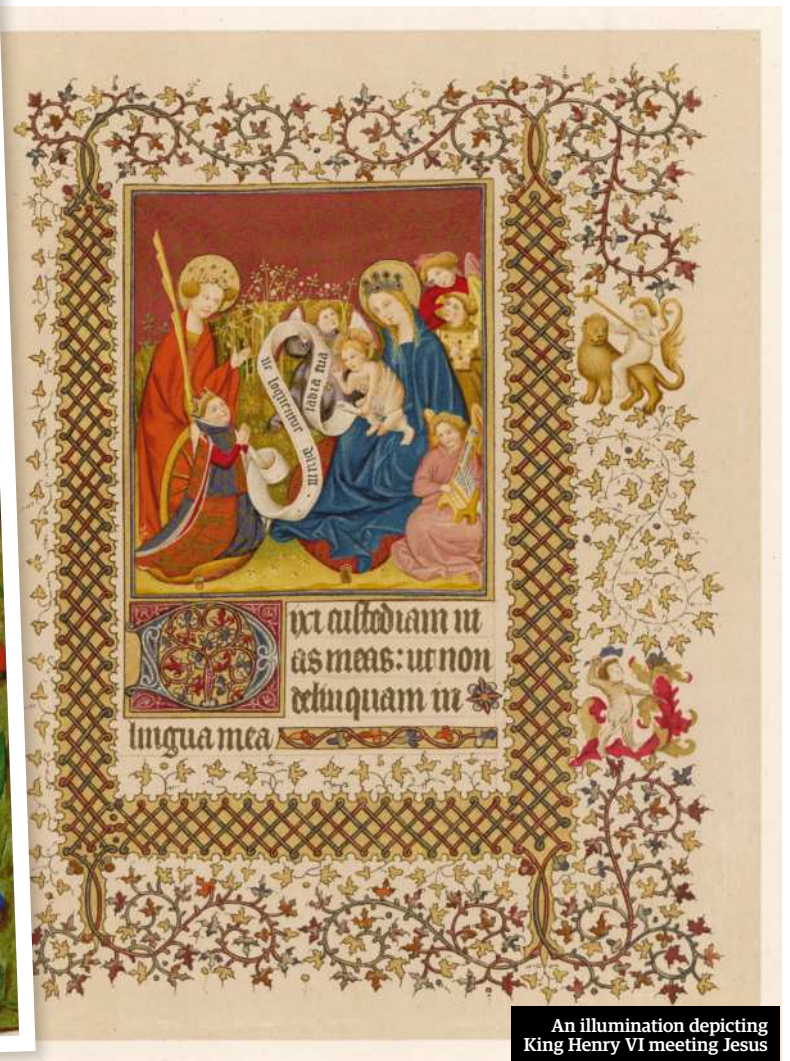 labia tua
ne loquentur
dolum
Dixi custodiam vi
as meas: ut non
delinquam in
lingua mea
An illumination depicting
King Henry VI meeting Jesus